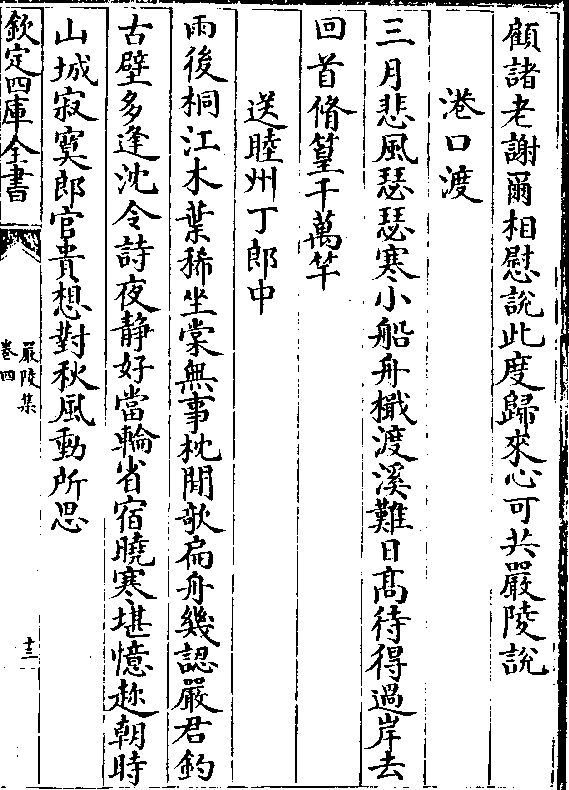 顧諸老謝爾相慰說此度歸來心可共嚴陵說
港口渡
三月悲風瑟瑟寒小船舟檝渡溪難日髙待得過岸去
回首脩篁千萬竿
送睦州丁郎中
雨後桐江木葉稀坐棠無事枕閒欹扁舟幾認嚴君釣
古壁多逢沈令詩夜靜好當輪省宿曉寒堪憶趂朝時
山城寂寞郎官貴想對秋風動所思
欽定四庫全書
嚴陵集
卷四
十三